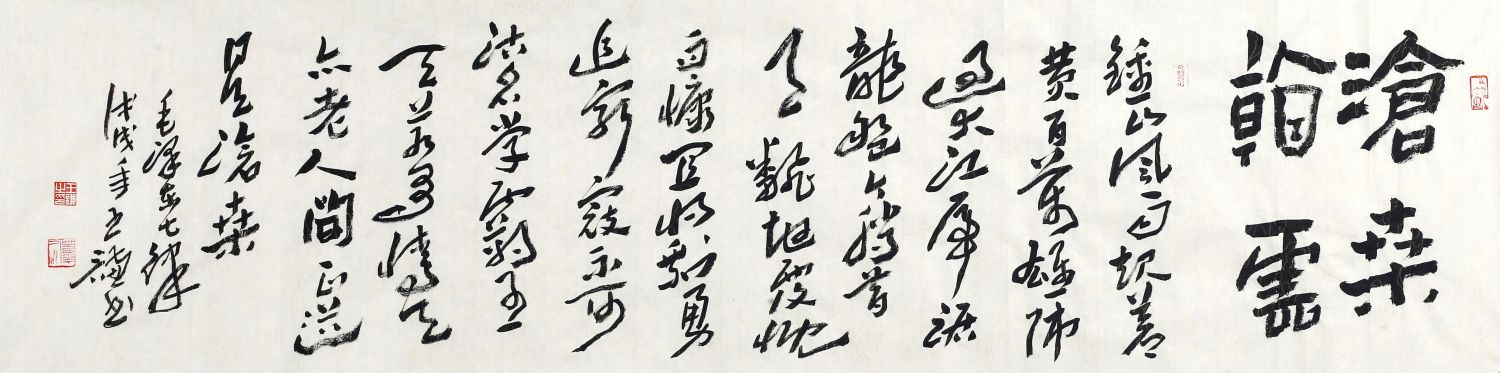 滄桑
雲
鍾山風雨起蒼
黄百萬雄師
過大江虎踞
龍盤今勝昔
天翻地覆慨
而慷宜將剩勇
追窮寇不可
沽名學霸王
天若有情天
亦老人間正道
是滄桑
毛澤東七律
戊戌年王書